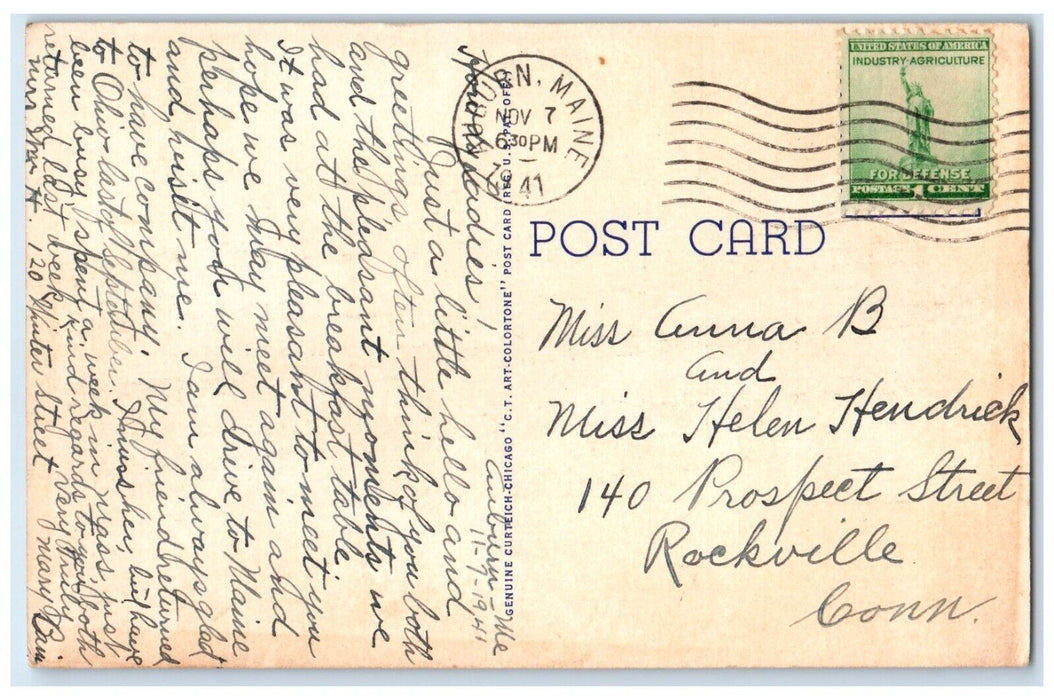 Auburn - Me
11-7-1941
Dear Ladies!
Just a little hello and
greetings. Often think of you both
and the pleasant moments we
had at the breakfast table.
It was very pleasant to meet you
hope we may meet again and
perhaps you will drive to Maine
and visit me. I am always glad
to have company. My friend returned
to Ohio last of September. but have
been busy, spent a week in Mass, just
returned last week, Kind regards to you both
Very truly
120 Winter Street Mary
AUBURN, MAINE
NOV 7
6 30 PM
1941
UNITED STATES OF AMERICA
INDUSTRY·AGRICULTURE
FOR DEFENSE
POSTAGE 1 CENT
POST CARD
GENUINE CURTEICH-CHICAGO "C.T. ART-COLORTONE" POST CARD (REG. U.S. PAT. OFF.)
Miss Anna B
and
Miss Helen Hendrick
140 Prospect Street
Rockville
Conn.